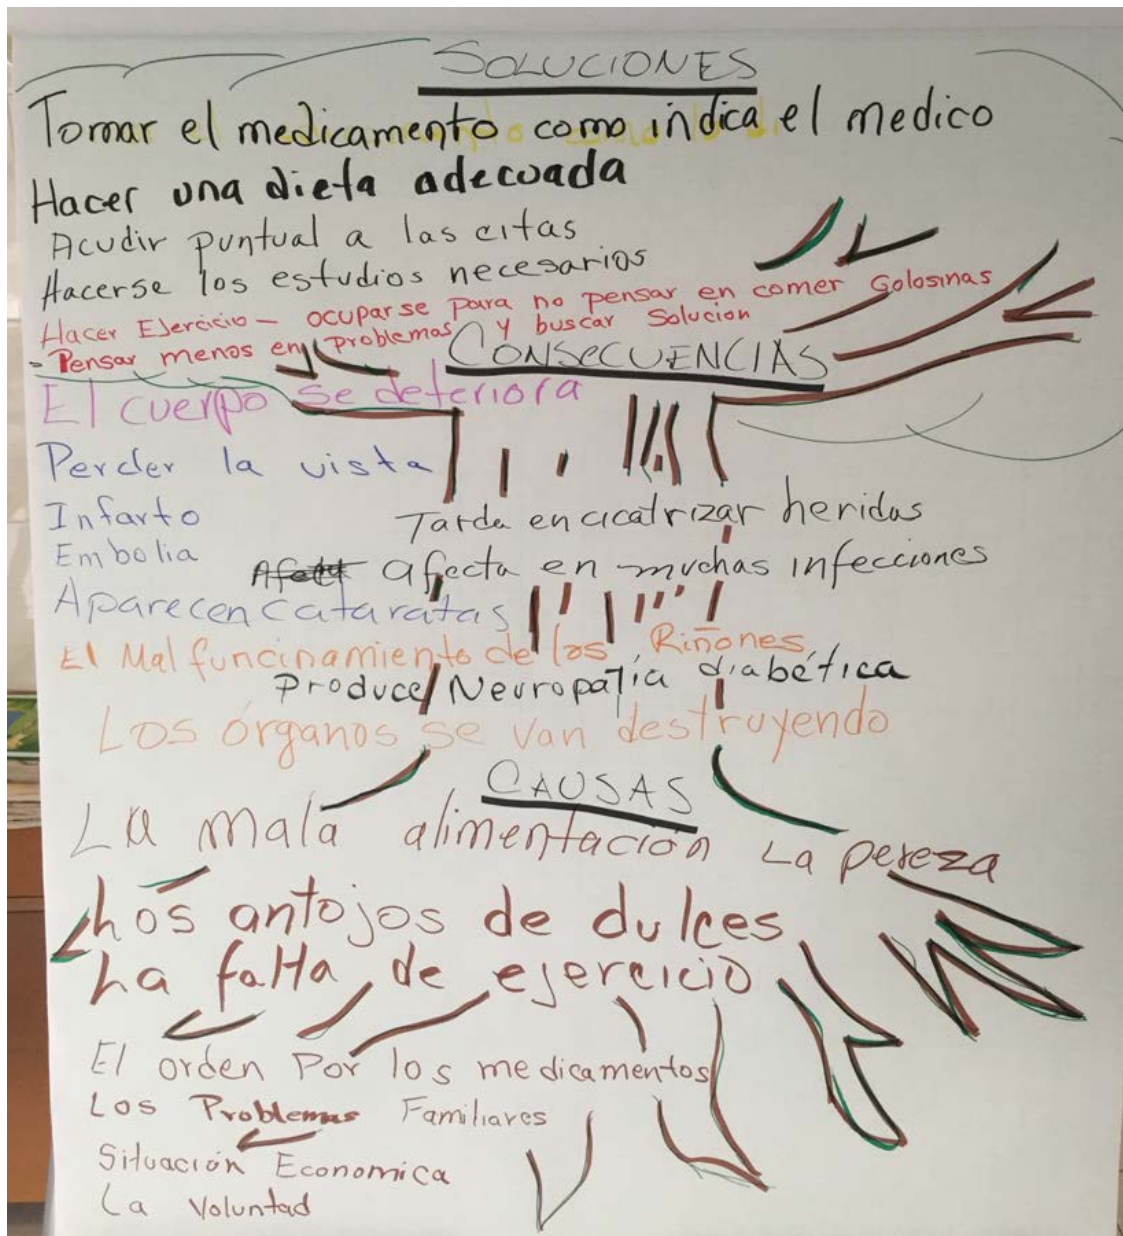 SOLUCIONES
Tomar el medicamento como indica el medico
Hacer una dieta adecuada
Acudir puntual a las citas
Hacerse los estudios necesarios
Hacer Ejercicio - ocuparse para no pensar en comer Golosinas
- Pensar menos en problemas y buscar Solucion
CONSECUENCIAS
El cuerpo se deteriora
Perder la vista
Infarto
Tarda en cicatrizar heridas
Embolia
afecta en muchas infecciones
Aparecen cataratas
El Mal funcinamiento de los Riñones
Produce Neuropatía diabética
Los órganos se van destruyendo
CAUSAS
La mala alimentación La pereza
Los antojos de dulces
La falta de ejercicio
El orden Por los medicamentos
Los Problemas Familiares
Situación Economica
La Voluntad